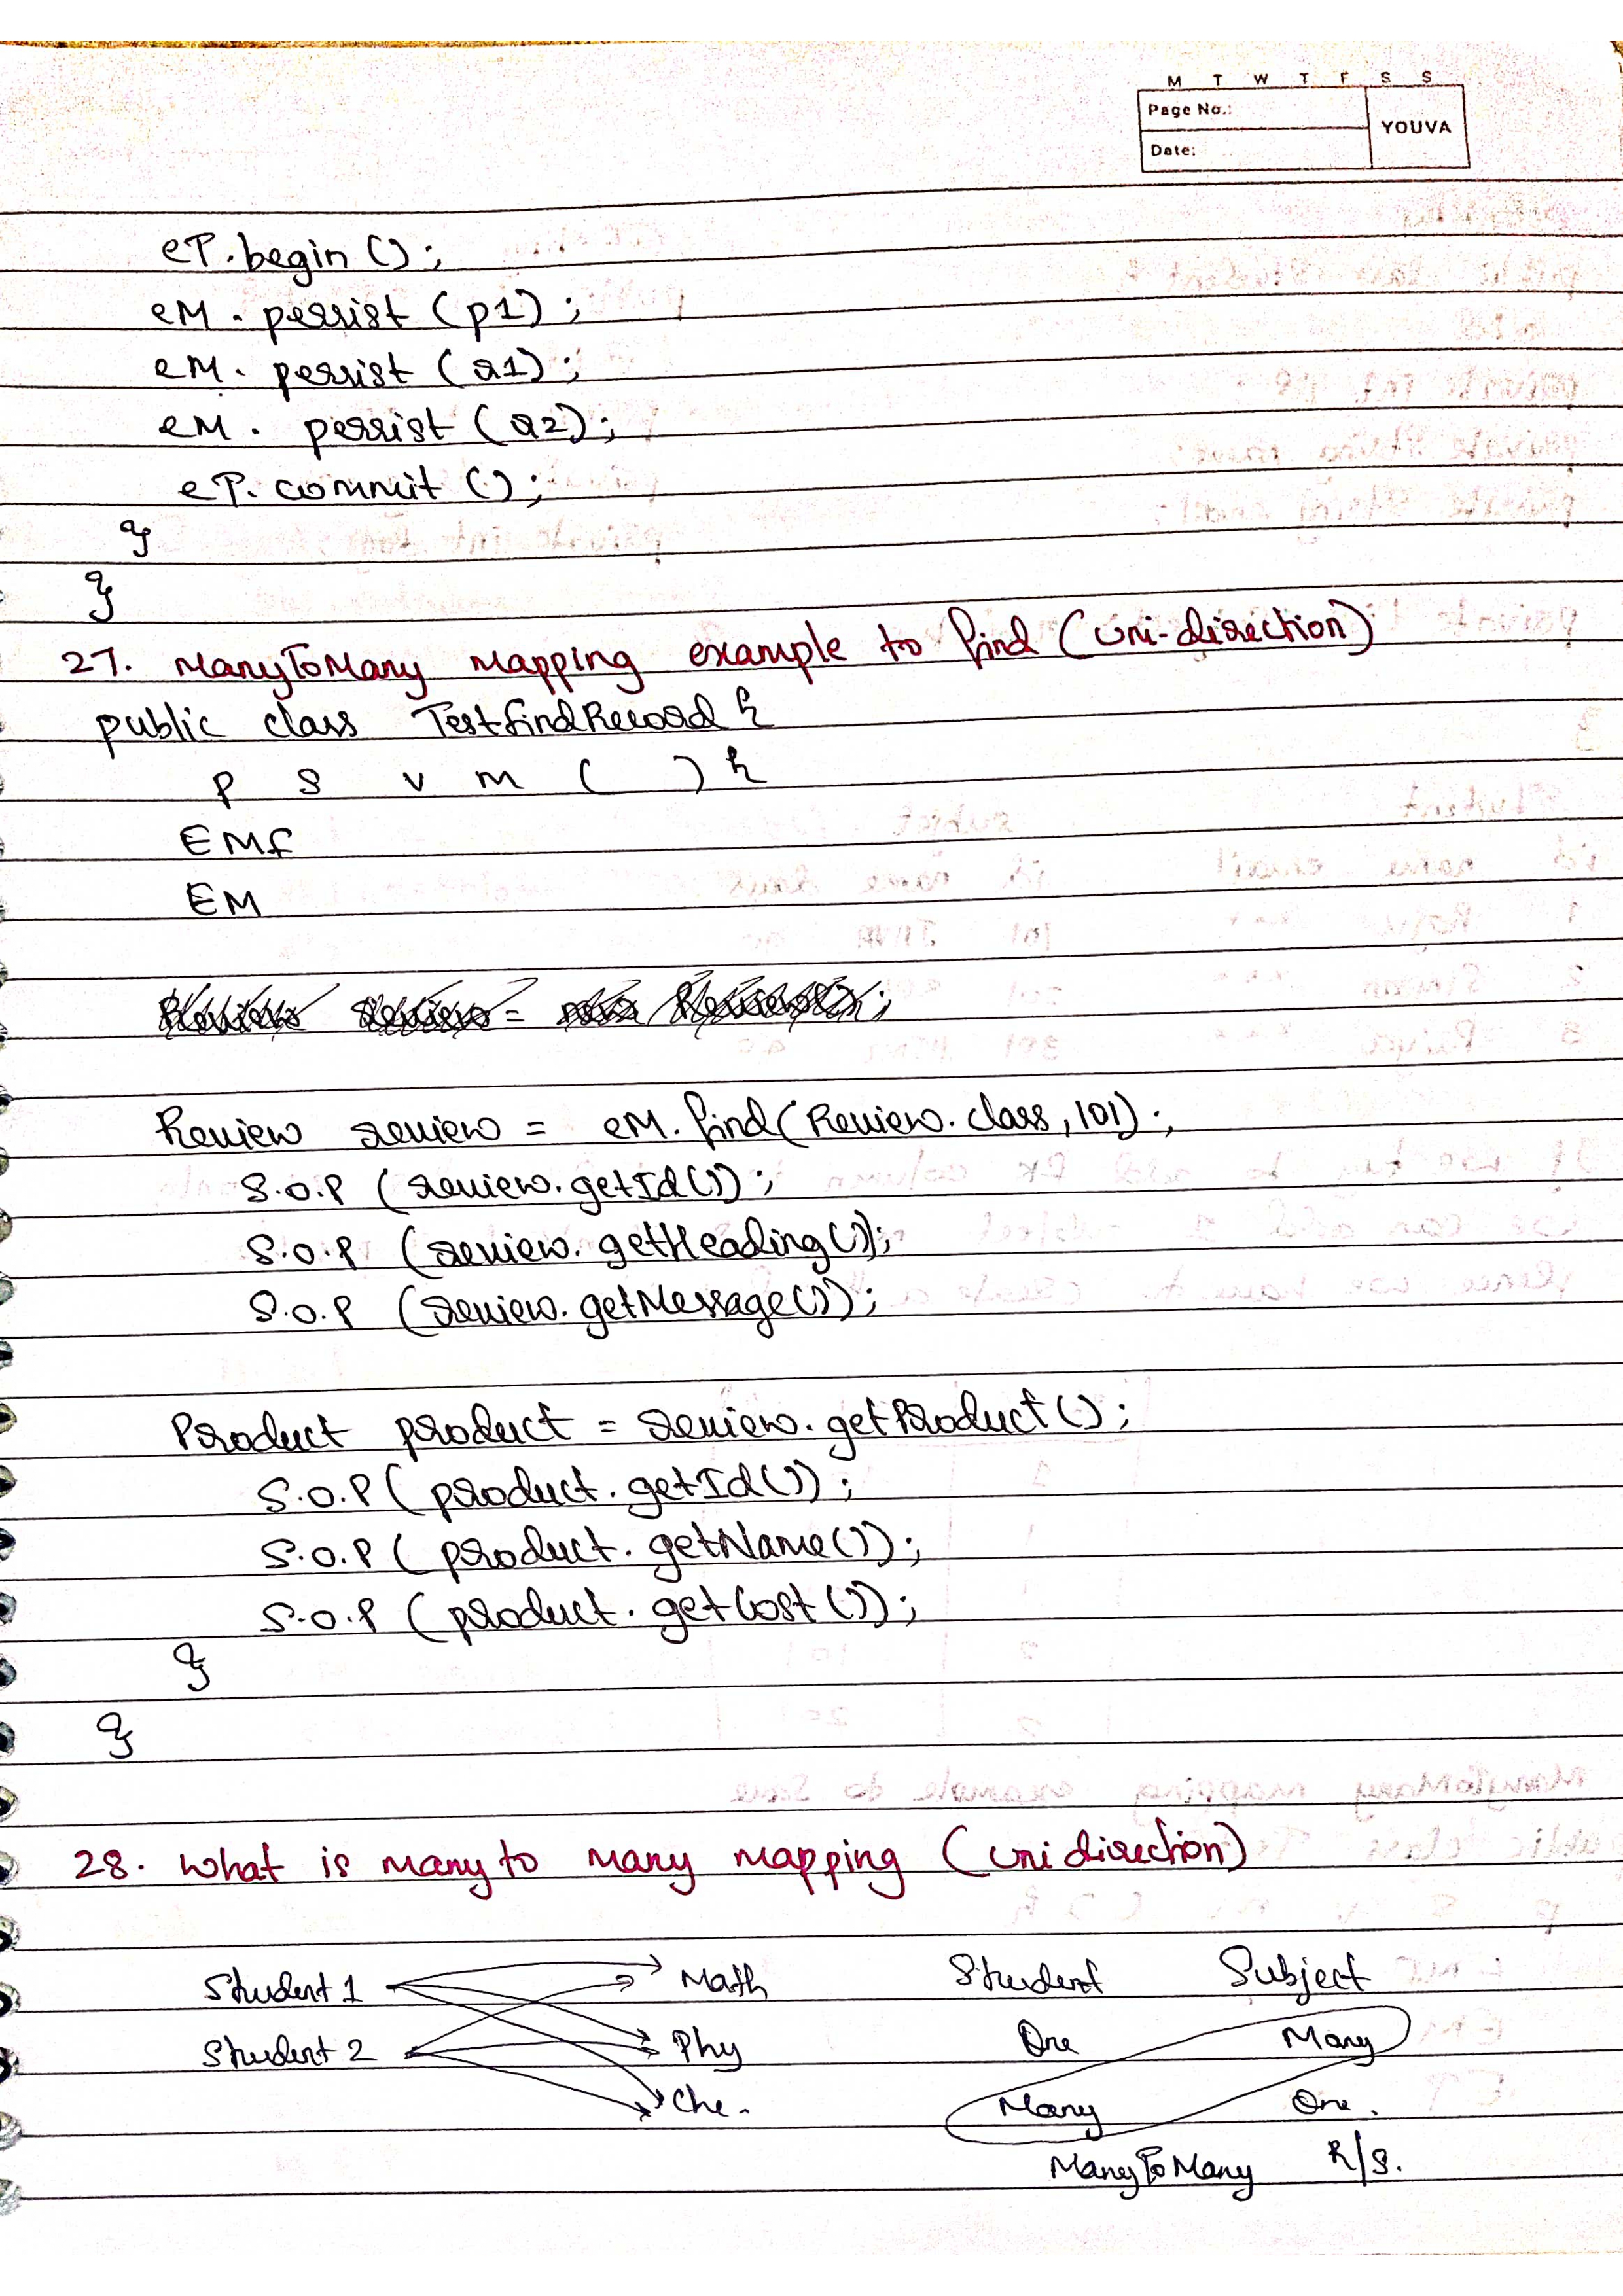 M T W T F S S
Page No.:
YOUVA
Date:
eT.begin();
eM.persist(p1);
eM.persist(a1);
eM.persist(a2);
eT.commit();
}
}
27. ManyToMany mapping example to find (uni-direction)
public class TestfindRecord {
p s v m ( ) {
EMF
EM
Review review = eM.find(Review.class,101);
S.O.P (review.getId());
S.O.P (review.getHeading());
S.O.P (review.getMessage());
Product product = review.getProduct();
S.O.P( product.getId());
S.O.P( product.getName());
S.O.P (product.getCost());
}
}
28. What is many to many mapping (uni direction)
Student 1 Math Student Subject
Student 2 Phy One Many
Che. Many One.
ManyToMany R/S.